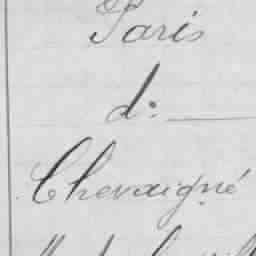 Paris
d:
Chevaigné